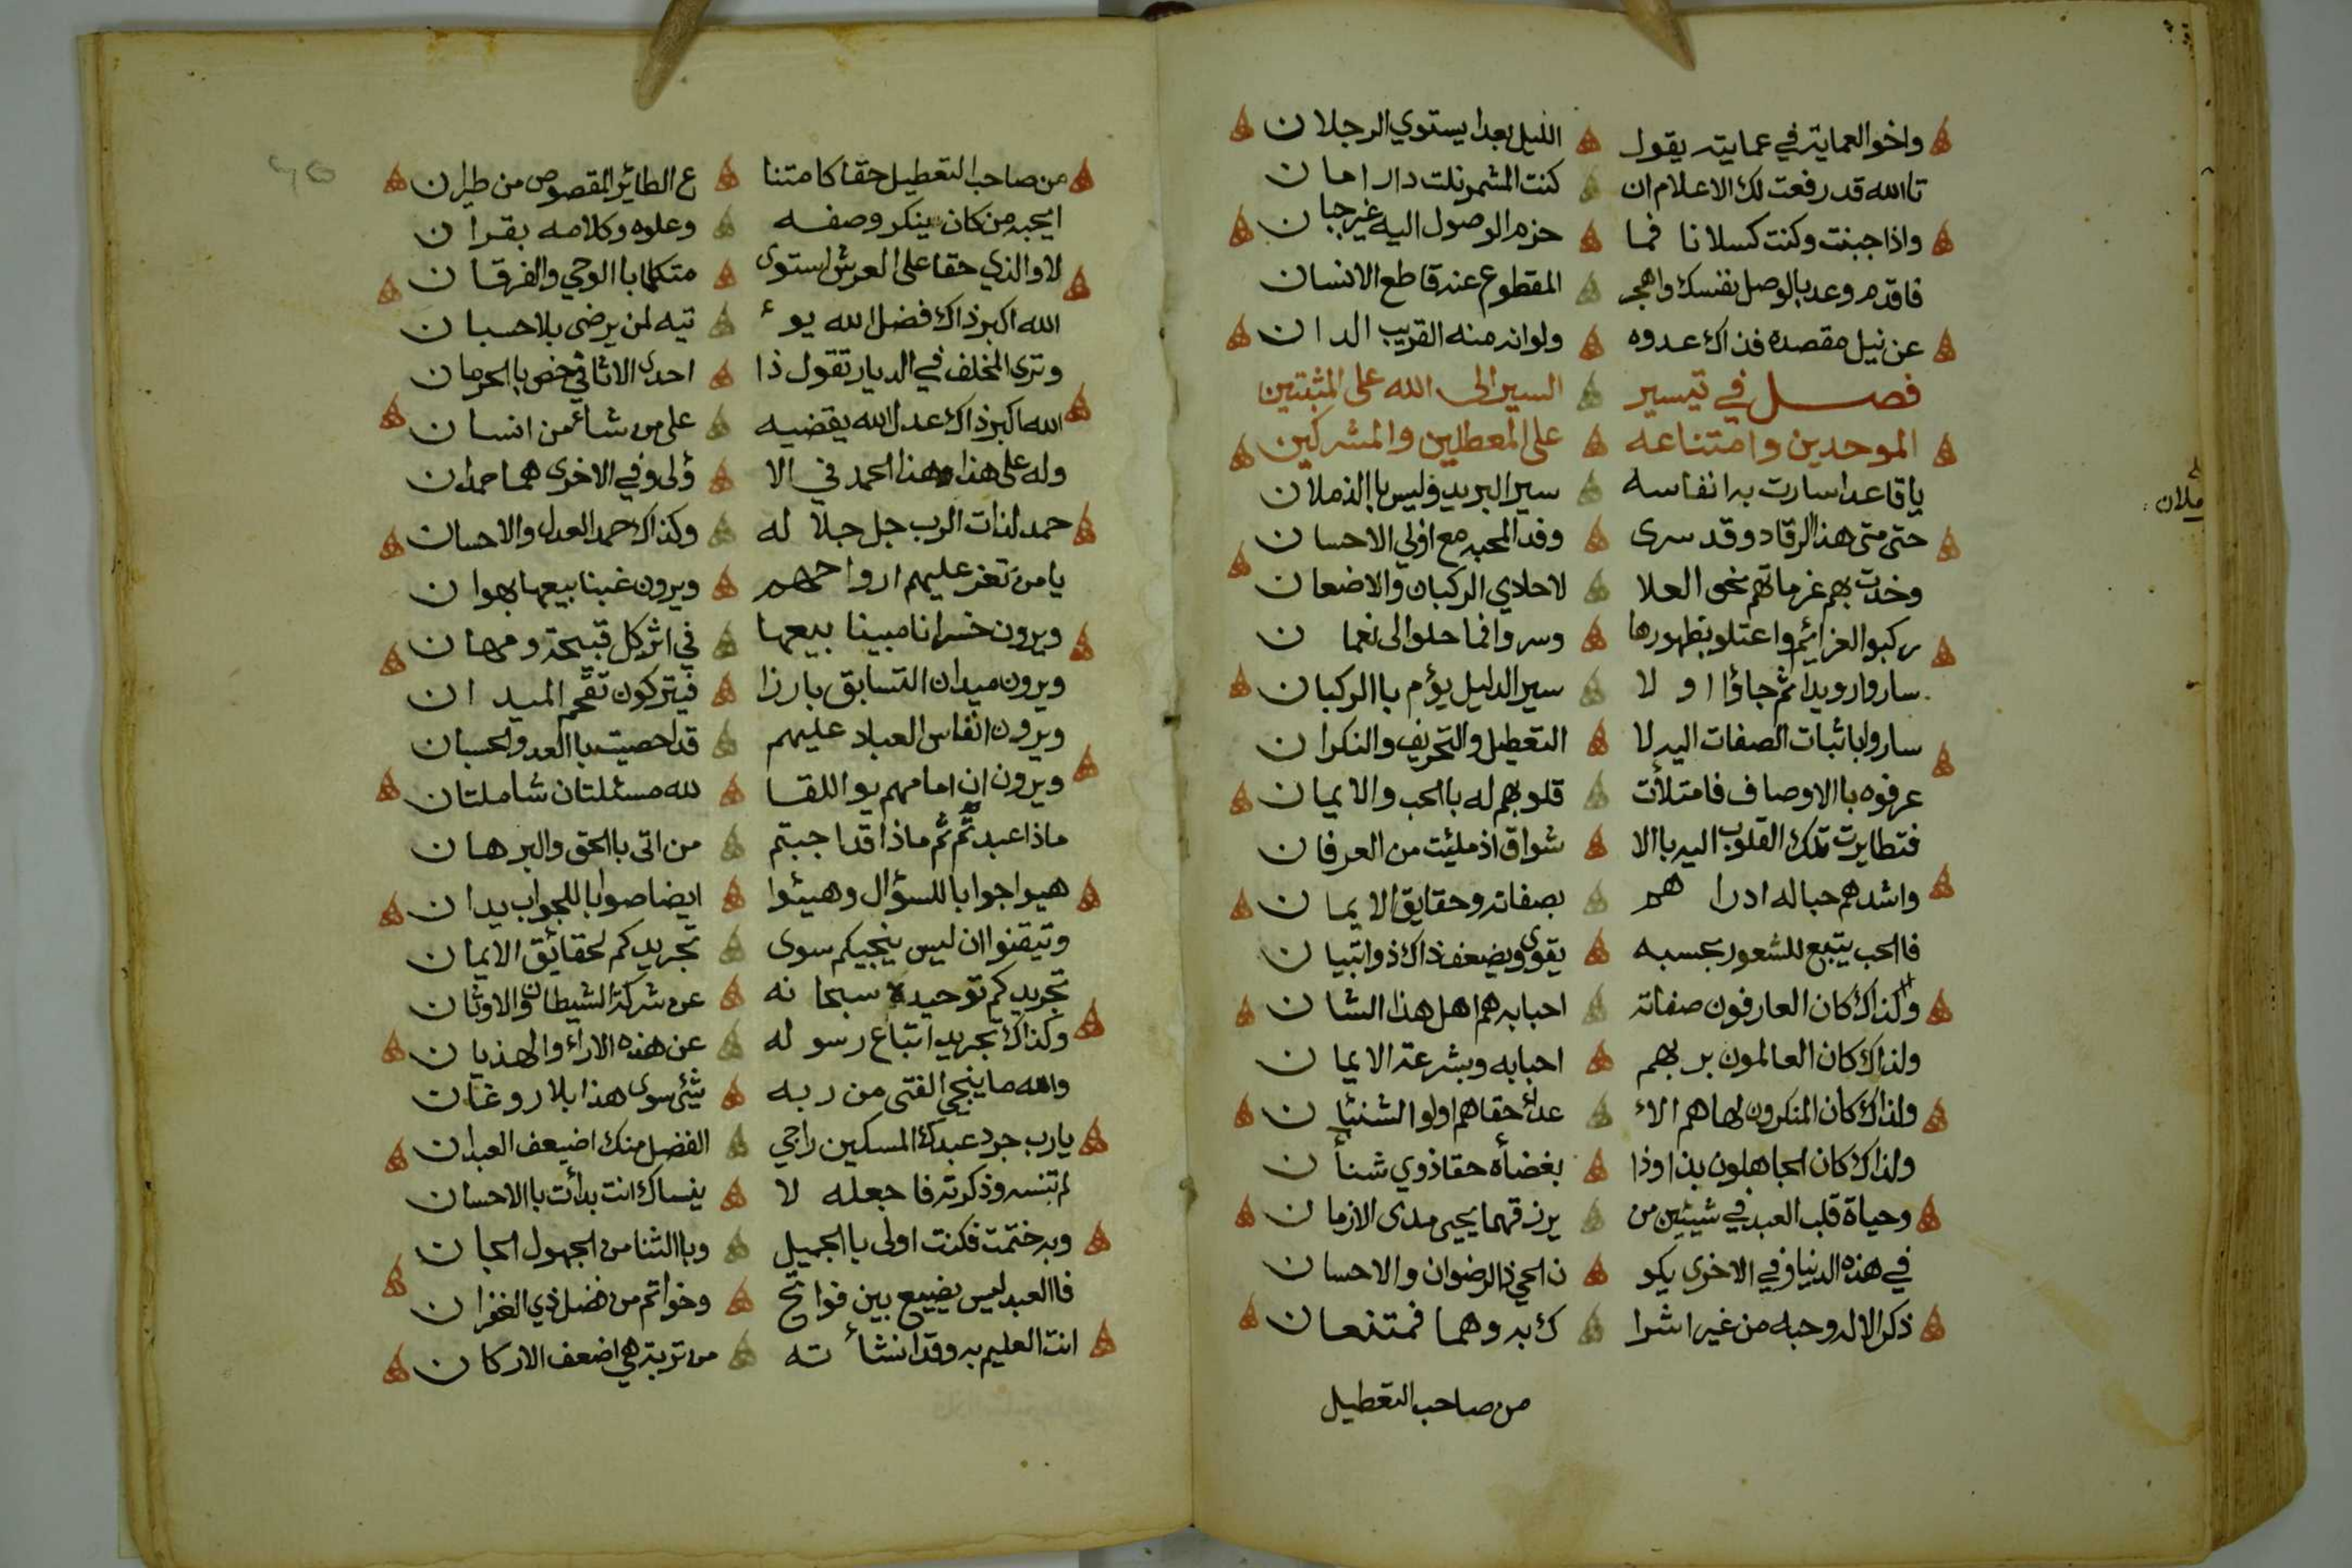 واخو العماية في عمايته يقول الليل بعد ايستوي الرجلان
تاالله قد رفعت لك الاعلام ان كنت المشمر نلت دار امان
واذا جبنت وكنت كسلانا فما حزم الوصول اليه غير جبان
فاقدم وعد بالوصل نفسك واهجر المقطوع عنه قاطع الانسان
عن نيل مقصده فذاك عدوه ولو انه منه القريب الدان
فصل في تيسير السير الى الله على المثبتين
الموحدين وامتناعه على المعطلين والمشركين
يا قاعدا سارت به انفاسه سير البريد وليس باالذملان
ملان
حتى متى هذا الرقاد وقد سرى وفد المحبه مع اولي الاحسان
وخدت بهم عزماتهم نحو العلا لا حادي الركبان والاضعان
ركبوا العزائم واعتلو بظهورها وسروا فما حلوا الى نعمان
ساروا رويدا ثم جاؤا او لا سير الدليل يؤم باالركبان
ساروا باثبات الصفات اليه لا التعطيل والتحريف والنكران
عرفوه باالاوصاف فامتلأت قلوبهم له باالحب والايمان
فتطايرت تلك القلوب اليه باالا شواق اذ ملئت من العرفان
واشدهم حبا له ادراهم بصفاته وحقايق الايمان
فاالحب يتبع للشعور بحسبه يقوى ويضعف ذاك ذو اتبيان
ولذاك كان العارفون صفاته احبابه هم اهل هذا الشان
ولذاك كان العالمون بربهم احبابه وبشرعة الايمان
ولذاك كان المنكرون لها هم الاء عداء حقا هم اولو الشنئان
ولذاك كان الجاهلون بذا وذا بغضأه حقا ذوي شنأن
وحياة قلب العبد في شيئين من يرزقهما يحيى مدى الازمان
في هذه الدنيا وفي الاخرى يكو ن الحي ذا الرضوان والاحسان
ذكر الاله وحبه من غير اشرا ك به وهما فمتنعان
من صاحب التعطيل
من صاحب التعطيل حقا كامتنا ع الطائر المقصوص من طيران
ايحبه من كان ينكر وصفه وعلوه وكلامه بقران
لا والذي حقا على العرش استوى متكلما باالوحي والفرقان
الله اكبر ذاك فضل الله يوء تيه لمن يرضى بلا حسبان
وترى المخلف في الديار تقول ذا احدى الاثافي خص باالحرمان
الله اكبر ذاك عدل الله يقضيه على من شاء من انسان
وله على هذا وهذا الحمد في الا ولى وفي الاخرى هما حمدان
حمد لذات الرب جل جلاله وكذاك حمد العدل والاحسان
يا من تعز عليهم ارواحهم ويرون غبنا بيعها بهوان
ويرون خسرانا مبينا بيعها في اثر كل قبيحة ومهان
ويرون ميدان التسابق بارزا فيتركون تقحم الميدان
ويرون انفاس العباد عليهم قد احصيت باالعد والحسبان
ويرون ان امامهم يو اللقا لله مسئلتان شاملتان
ماذا عبدتم ثم ماذا قد اجبتم من اتى باالحق والبرهان
هيوا جوابا للسؤال وهيئوا ايضا صوابا للجواب يدان
وتيقنوا ان ليس ينجيكم سوى تجريدكم لحقائق الايمان
تجريدكم توحيده سبحانه عن شركة الشيطان والاوثان
وكذاك تجريد اتباع رسوله عن هذه الاراء والهذيان
والله ما ينجي الفتى من ربه شئ سوى هذا بلا روغان
يا رب جرد عبدك المسكين راجي الفضل منك اضيعف العبدان
لم تنسه وذكرته فاجعله لا ينساك انت بدأت باالاحسان
وبه ختمت فكنت اولى باالجميل وباالثنا من الجهول الجان
فاالعبد ليس يضيع بين فواتح وخواتم من فضل ذي الغفران
انت العليم به وقد انشأته من تربة هي اضعف الاركان